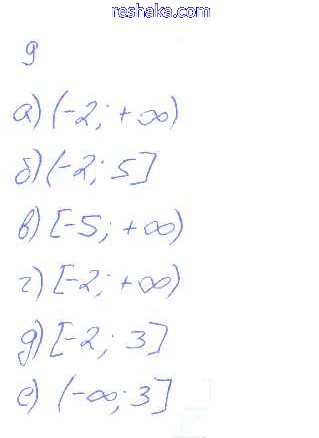 reshaka.com
9
а) (-2; +∞)
б) (-2; 5]
в) [-5; +∞)
г) [-2; +∞)
д) [-2; 3]
е) (-∞; 3]